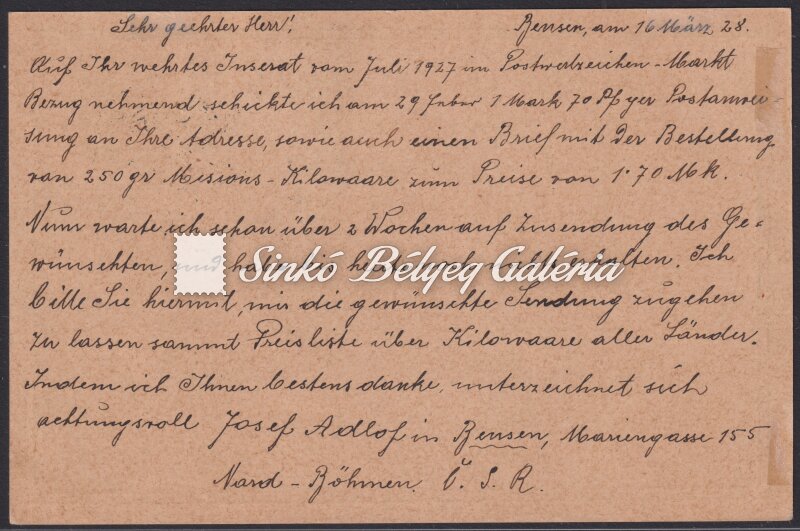 Sehr geehrter Herr! Bensen, am 16 März 28.
Auf Ihr wehrtes Inserat vom Juli 1927 im Postwertzeichen-Markt
Bezug nehmend schickte ich am 29 Feber 1 Mark 70 Pf per Postanwei-
sung an Ihre Adresse, sowie auch einen Brief mit der Bestellung
von 250 gr Misions-Kilowaare zum Preise von 1·70 Mk.
Nun warte ich schon über 2 Wochen auf Zusendung des Ge-
wünschten, und habe bis heute noch nichts erhalten. Ich
Sinkó Bélyeg Galéria
bitte Sie hiermit, mir die gewünschte Sendung zugehen
zu lassen sammt Preisliste über Kilowaare aller Länder.
Indem ich Ihnen bestens danke, unterzeichnet sich
achtungsvoll Josef Adlof in Bensen, Mariengasse 155
Nord-Böhmen. Č. S. R.